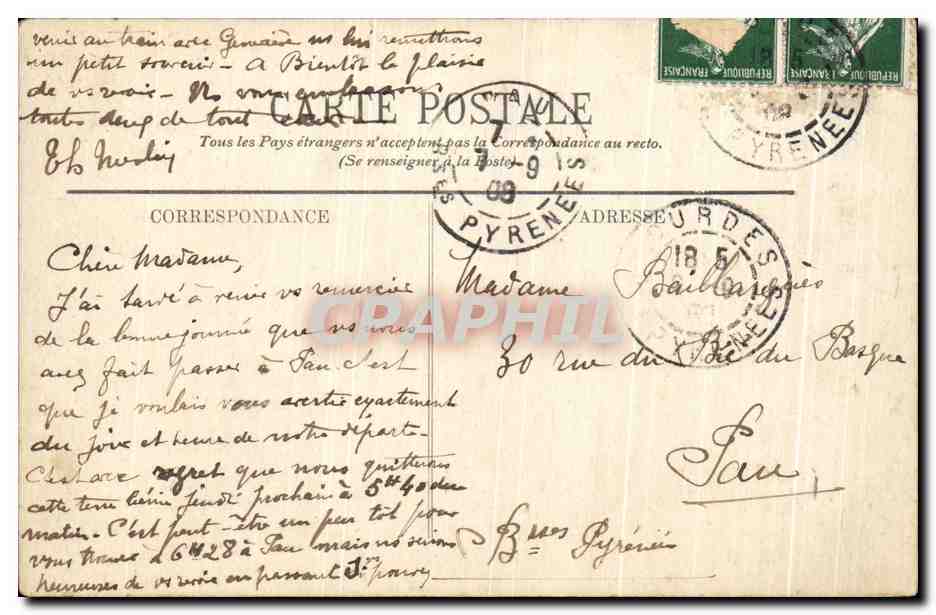 venir au train avec Germaine ns lui remettrons
un petit souvenir - A Bientôt le plaisir
de vs revoir - Ns vous embrassons
toutes deux de tout cœur
CARTE POSTALE
Tous les Pays étrangers n'acceptent pas la Correspondance au recto.
(Se renseigner à la Poste)
CORRESPONDANCE
Chère Madame,
J'ai tardé à venir vs remercier
de la bonne journée que vs nous
avez fait passer à Pau. C'est
que je voulais vous avertir exactement
du jour et heure de notre départ -
C'est avec regret que nous quitterons
cette terre bénie Jeudi prochain à 5H40 du
matin. C'est peut-être un peu tôt pour
vous trouver à 6H28 à Pau mais ns serions
heureuses de vs revoir en passant Si pouvez
ADRESSE
Madame Baillarguès
30 rue du Bic du Basque
Pau
Bsses Pyrénées
REPUBLIQUE FRANÇAISE
REPUBLIQUE FRANÇAISE
PAU
7 -9
09
BSES PYRENEES
LOURDES
18 5
PYRENEES
09
PYRENEES
CPAPHIL